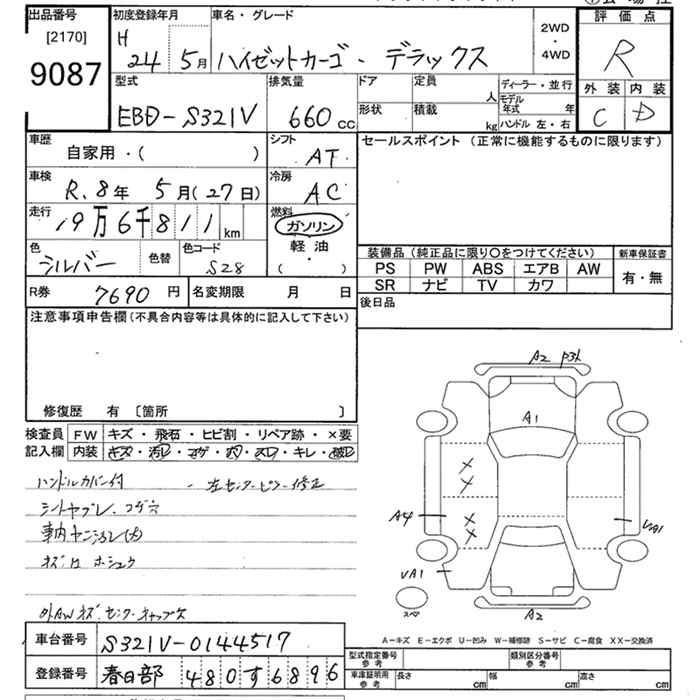 出品番号
[2170]
9087
初度登録年月
H 24 年 5月
車名・グレード
ハイゼットカーゴ・デラックス
2WD
・
4WD
評価点
R
外装 内装
C D
型式
EBD-S321V
排気量
660 cc
ドア
形状
定員
人
積載
kg
ディーラー・並行
モデル年式 年
ハンドル 左・右
車歴
自家用・( )
シフト
AT
車検
R.8年 5月(27日)
冷房
AC
走行
19万6千811km
燃料
ガソリン
軽油
・
( )
色
シルバー
色替
色コード
S28
R券 7690円
名変期限 月 日
セールスポイント (正常に機能するものに限ります)
装備品 (純正品に限り○をつけてください)
新車保証書
PS PW ABS エアB AW
SR ナビ TV カワ
有・無
後日品
注意事項申告欄(不具合内容等は具体的に記入して下さい)
修復歴 有 〔箇所 〕
検査員記入欄
FW キズ・飛石・ヒビ割・リペア跡・×要
内装 キズ・汚レ・コゲ・穴・スレ・キレ・破レ
ハンドルカバー付 ・左センターピラー修正
シートヤブレ、コゲ穴
車内ヤニ汚レ(大)
キズ・穴 ホシュウ
外AWキズ.センターキャップ欠
A2
A1
A4
VA1
VA1
スペア
A2
A-キズ E-エクボ U-凹み W-補修跡 S-サビ C-腐食 XX-交換済
車台番号 S321V-0144517
登録番号 春日部 480す6896
型式指定番号 参考
類別区分番号 参考
車庫証明用 参考
長さ cm
幅 cm
高さ cm